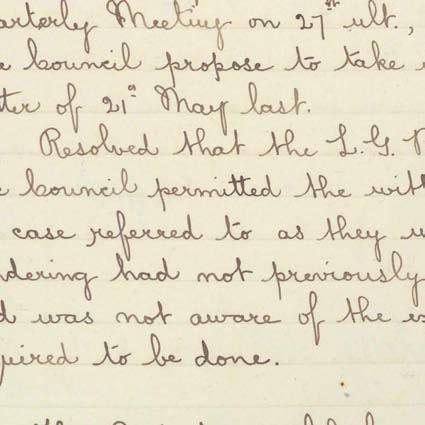 arterly Meeting on 27th ult.,
e Council propose to take
tter of 21st May last.
Resolved that the L. G.
e Council permitted the with
case referred to as they
ndering had not previously
d was not aware of the
quired to be done.